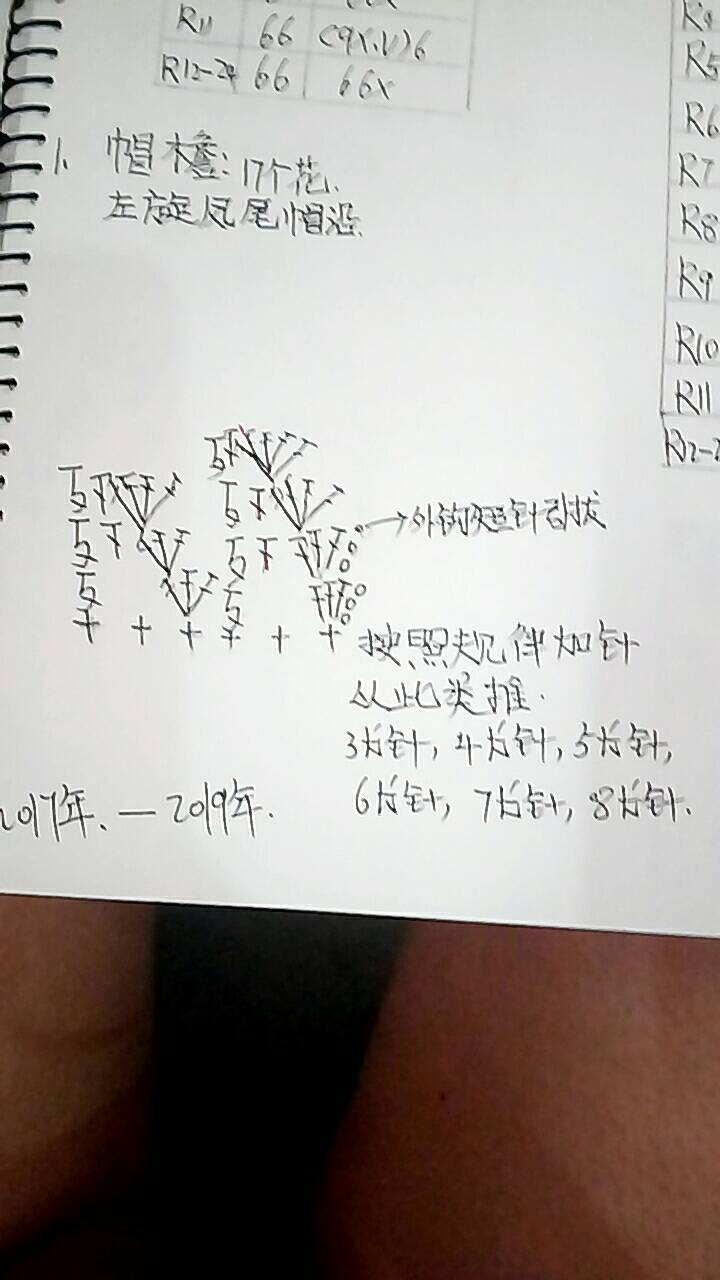 R11 66 (9X,V)6
R12-24 66 66X
1、帽檐：17个花、
左旋凤尾帽沿、
→外钩短针引拔
按照规律加针
从此类推.
3长针，4长针，5长针，
6长针，7长针，8长针、
2017年、—2019年.
R4
R5
R6
R7
R8
R9
R10
R11
R12-2